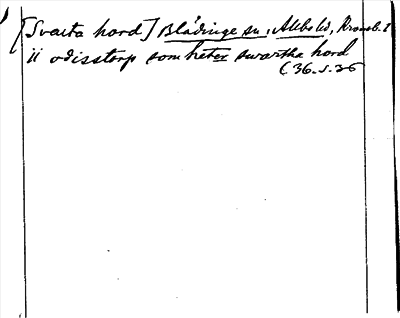 [Svarta hord] Blädinge sn, Allbo hd, Kronob. l
ii odisstorp som heter swartha hord
C 36. s. 36